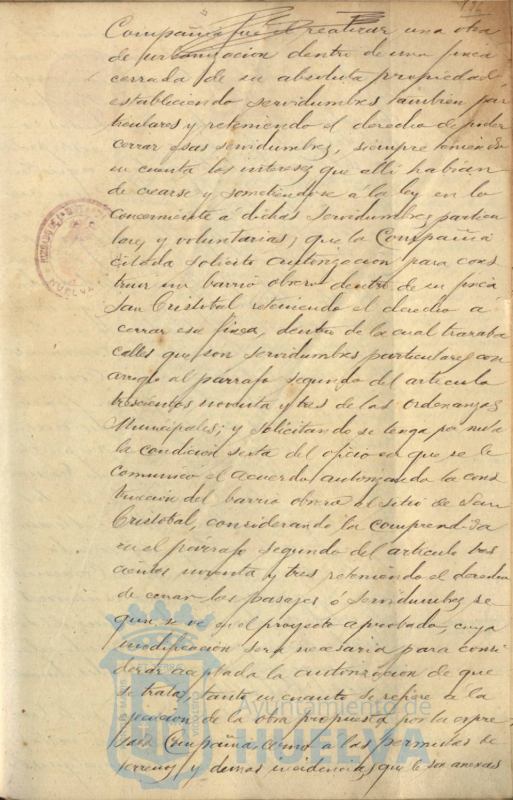 Compañía fué el realizar una obra
de urbanizacion dentro de una finca
cerrada de su absoluta propiedad
estableciendo servidumbres tambien par
ticulares y reteniendo el derecho de poder
cerrar esas servidumbres, siempre teniendo
en cuenta los intereses que allí habían
de crearse y sometiendose a la ley en lo
concerniente a dichas servidumbres particu
lares y voluntarias; que la Compañía
citada solicitó autorizacion para cons
truir un barrio obrero dentro de su finca
San Cristobal reteniendo el derecho a
cerrar esa finca, dentro de la cual trazaba
calles que son servidumbres particulares con
arreglo al párrafo segundo del articulo
trescientos noventa y tres de las Ordenanzas
Municipales; y solicitando se tenga por nula
la condición sexta del oficio en que se le
comunicó el acuerdo autorizando la cons
trucción del barrio obrero al sitio de San
Cristobal, considerandola comprendida
en el párrafo segundo del articulo tres
cientos noventa y tres reteniendo el derecho
de cerrar los pasajes ó servidumbres se
gun se ve en el proyecto aprobado, cuya
modificación será necesaria para consi
derar aceptada la autorizacion de que
se trata, tanto en cuanto se refiere a la
ejecucion de la obra propuesta por la expre
sada Compañía como a las permutas de
terrenos y demas incidencias que le son anexas
HUELVA
Ayuntamiento de
HUELVA